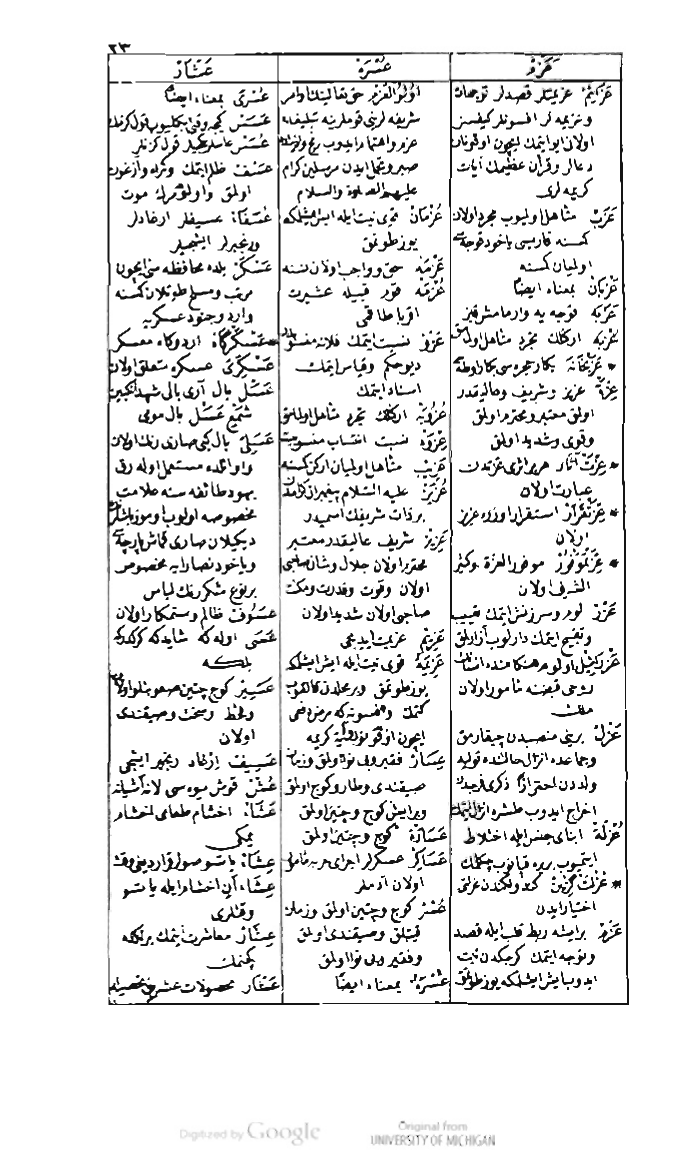 ٢٣
عزم
عسرة
عشار
عزائم عزيمتلر قصدلر توجهات
وعزيمه لر افسونلر كيفسز
اولان ايو ايتمك ايچون اوقونان
دعالر وقران عظيمك آيات
كريمه لرى
عزب متاهل اوليوب مجرد اولان
كمسنه فارسى ياخود قوجه سى
اولميان كمسنه
عزبان بمعناه ايضا
عزبه قوجه يه وارمامش قيز
عزبه اركك مجرد متاهل اولمق
* عزبخانه بكار حجره سى بكار اوطه سى
عزة عزيز وشريف وعاليقدر
اولق معتبر ومحترم اولق
وقوى وشديد اولق
* عزت آثار هر بر اثرى عزتدن
عبارت اولان
* عزتقرار استقرار اوزره عزيز
اولان
* عزتموفور موفور العزة وكثير
الشرف اولان
عزر لوم وسرزنش ايتمك تعييب
وتقبيح ايتمك دارلوب آزارلمق
روحى قبضنه مأمور اولان
ملك
عزل برينى منصبدن چيقارمق
وجماعده انزال حالنده توليه
ولددن احترازا ذكرى فرجدن
اخراج ايدوب طشره انزال ايتمك
عزلة ابناى جنس ايله اختلاط
ايتميوب بر يره قپانوب چكلمك
* عزلت گزين كندولكندن عزلتى
اختيار ايدن
عزم بر ايشه ربط قلب ايله قصد
وتوجه ايتمك كرچكدن نيت
ايدوب ايش ايشلمكه يوز طوتمق
اولو العزم حق تعالينك اوامر
شريفه لرينى قوللرينه تبليغده
صبر وتحمل ايدن مرسلين كرام
عليهم الصلوة والسلام
عزمان قوى نيت ايله ايش ايشلمكه
يوز طوتمق
عزمه حق وواجب اولان نسنه
عزمه قوم قبيله عشيرت
اقربا طاقمى
عزو نسبت ايتمك فلانه منسوبدر
ديو حكم وقياس ايتمك
اسناد ايتمك
عزوبه اركك مجرد متاهل اولمامق
عزوه نسبت انتساب منسوبيت
عزيب متاهل اولميان اركن كمسنه
عزير عليه السلام پيغمبران كرامدن
بر ذات شريفك اسميدر
عزيز شريف عاليقدر معتبر
محترم اولان جلال وشان صاحبى
اولان وقوت وقدرت ومكنت
صاحبى اولان شديد اولان
عزيم عزيمت ايديجى
عزيمه قوى نيت ايله ايش ايشلمكه
يوز طوتمق وبر محلدن قالقوب
كتمك وافسونه كه مرض دفعى
ايچون اوقونور ادعيه كريمه
عسار فقير وبى نوا اولق وزمان
صيقنديلى وطار وكوج اولق
وبر ايش كوج وچتين اولق
عسارة كوج وچتين اولق
عساكر عسكرلر اجراى حربه مأمور
اولان آدملر
عسر كوج وچتين اولق وزمان
قيتلق وصيقنديلى اولق
وفقير وبى نوا اولق
عسرة بمعناه ايضا
عسرى بمعناه ايضا
عسس كيجه وقتى بكليوب قول كزنلر
عسس عاسلر كيجه قول كزنلر
عسف ظلم ايتمك
اولق واولق موت
عسفاء عسيفلر ارغادلر
ورنجبرلر ايشجيلر
عسكر بلده محافظه سى ايچون
مرتب ومسلح طوتيلان كمسنه
وارد وجنود عسكريه
* عسكرگاه اردوكاه معسكر
عسكرى عسكره متعلق اولان
عسل بال آرى بالى شهد انكبين
شمع عسل بال مومى
عسلى بال كبى صارى رنك اولان
واوائلده مستعمل اوله رق
يهود طائفه سنه علامت
مخصوصه اولوب اوموز باشلرينه
ديكيلان صارى قماش پارچه سى
وياخود نصارايه مخصوص
بر نوع سكز رنك لباس
عسوف ظالم وستمكار اولان
عسى اوله كه شايد كه كركدر كه
بلكه
عسير كوج چتين صعوبتلو اولان
وقحط وسخت وصيقنديلى
اولان
عسيف ارغاد رنجبر ايشجى
عش قوش يوه سى لانه آشيانه
عشاء اخشام طعامى اخشام
يمكى
عشاء ياتسو صولر قرارديغى وقت
عشاءان اخشام ايله ياتسو
وقتلرى
عشار معاشرت ايتمك برلكده
كچنمك
عشار محصولات عشرينى تحصيلدار
Digitized by Google
Original from
UNIVERSITY OF MICHIGAN